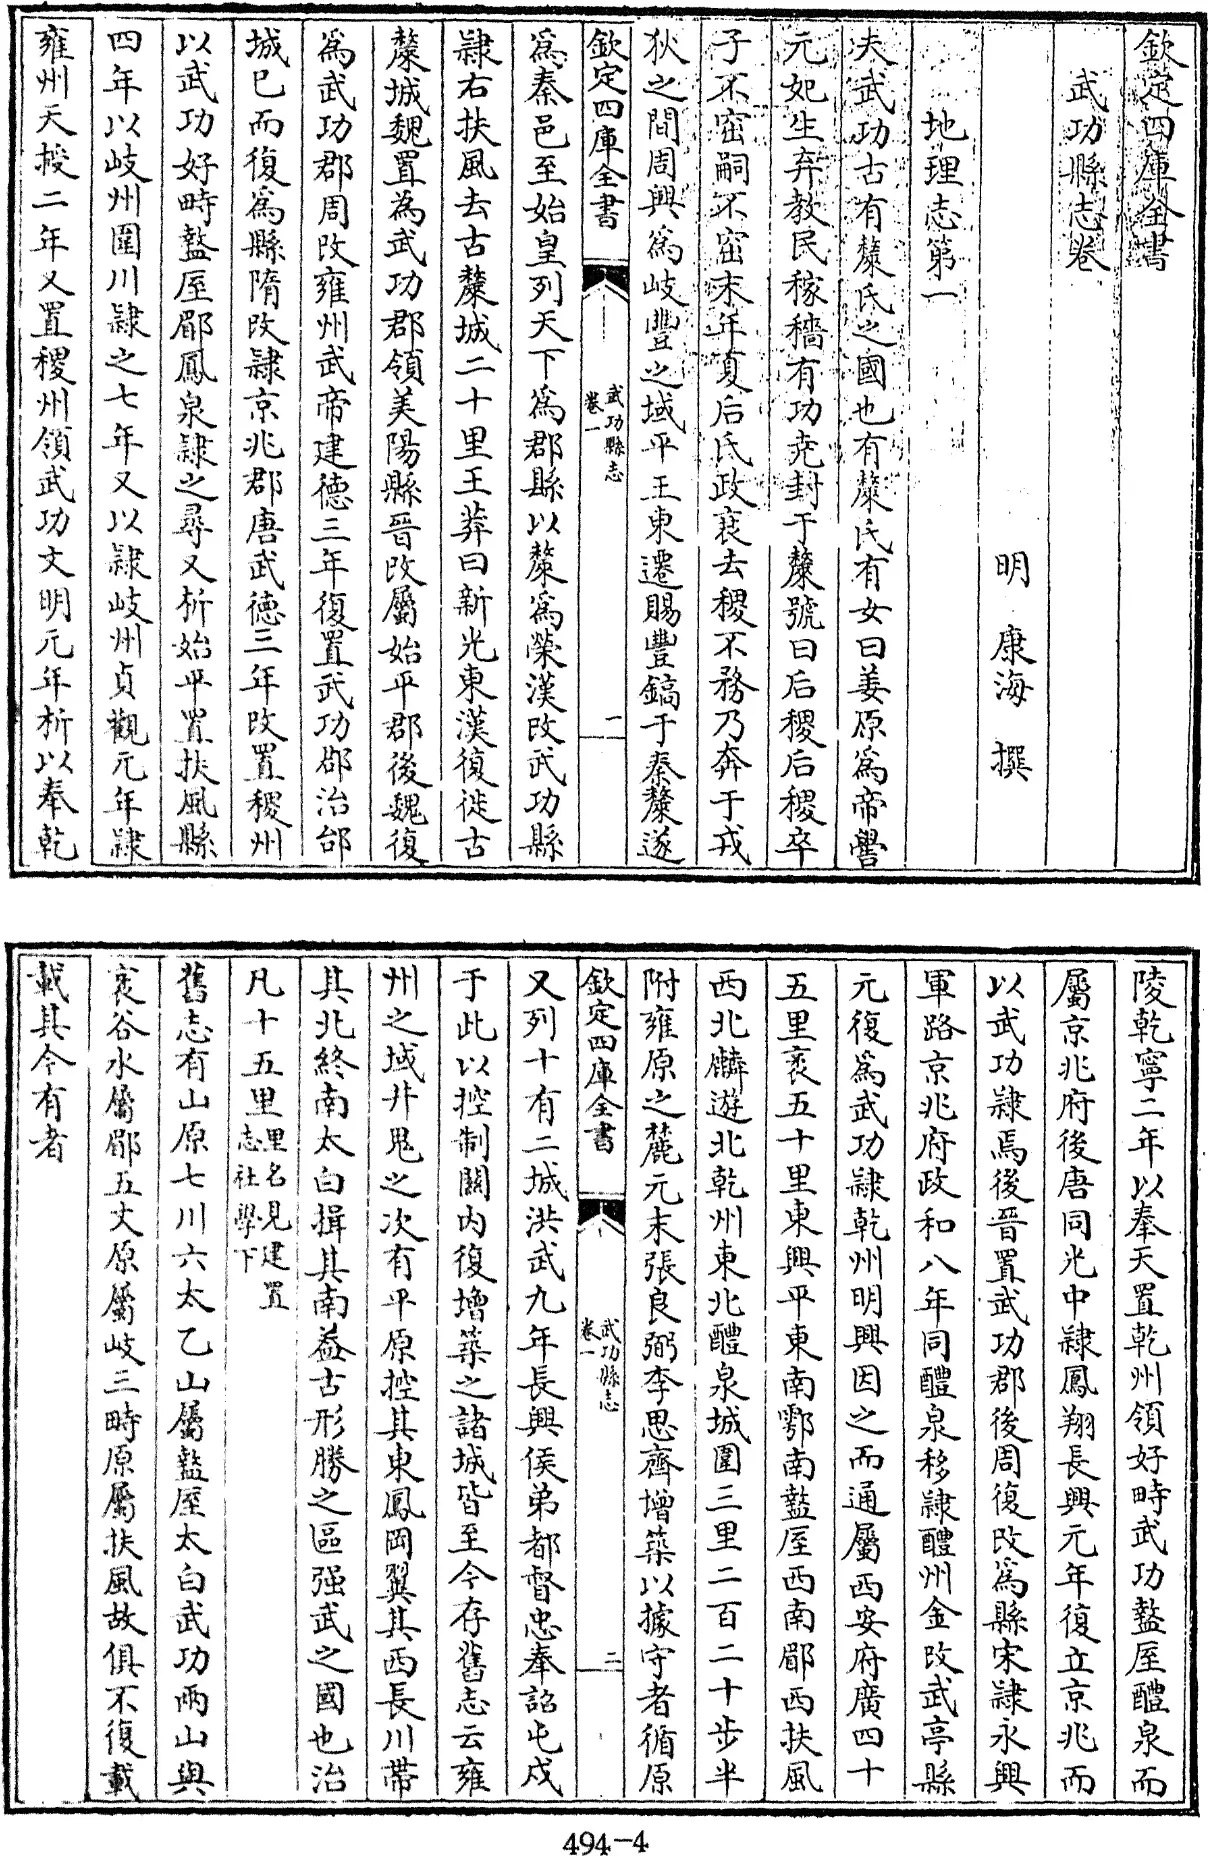 欽定四庫全書
武功縣志卷一
明 康海 撰
地理志第一
夫武功古有斄氏之國也有斄氏有女曰姜原為帝嚳
元妃生弃教民稼穡有功堯封于斄號曰后稷后稷卒
子不窋嗣不窋末年夏后氏政衰去稷不務乃奔于戎
狄之間周興為岐豐之域平王東遷賜豐鎬于秦斄遂
欽定四庫全書
武功縣志
卷一
一
為秦邑至始皇列天下為郡縣以斄為漦漢改武功縣
隷右扶風去古斄城二十里王莽曰新光東漢復徙古
斄城魏置為武功郡領美陽縣晉改屬始平郡後魏復
為武功郡周改雍州武帝建德三年復置武功郡治邰
城已而復為縣隋改隷京兆郡唐武德三年改置稷州
以武功好畤盩厔郿鳳泉隷之尋又析始平置扶風縣
四年以岐州圍川隷之七年又以隷岐州貞觀元年隷
雍州天授二年又置稷州領武功文明元年析以奉乾
陵乾寧二年以奉天置乾州領好畤武功盩厔醴泉而
屬京兆府後唐同光中隷鳳翔長興元年復立京兆而
以武功隷焉後晉置武功郡後周復改為縣宋隷永興
軍路京兆府政和八年同醴泉移隷醴州金改武亭縣
元復為武功隷乾州明興因之而通屬西安府廣四十
五里袤五十里東興平東南鄠南盩厔西南郿西扶風
西北麟遊北乾州東北醴泉城圍三里二百二十步半
附雍原之麓元末張良弼李思齊增築以據守者循原
欽定四庫全書
武功縣志
卷一
二
又列十有二城洪武九年長興侯弟都督忠奉詔屯戍
于此以控制關内復增築之諸城皆至今存舊志云雍
州之域井鬼之次有平原控其東鳳岡翼其西長川帶
其北終南太白揖其南益古形勝之區强武之國也治
凡十五里里名見建置
志社學下
舊志有山原七川六太乙山屬盩厔太白武功兩山與
衺谷水屬郿五丈原屬岐三畤原屬扶風故俱不復載
載其今有者
494-4